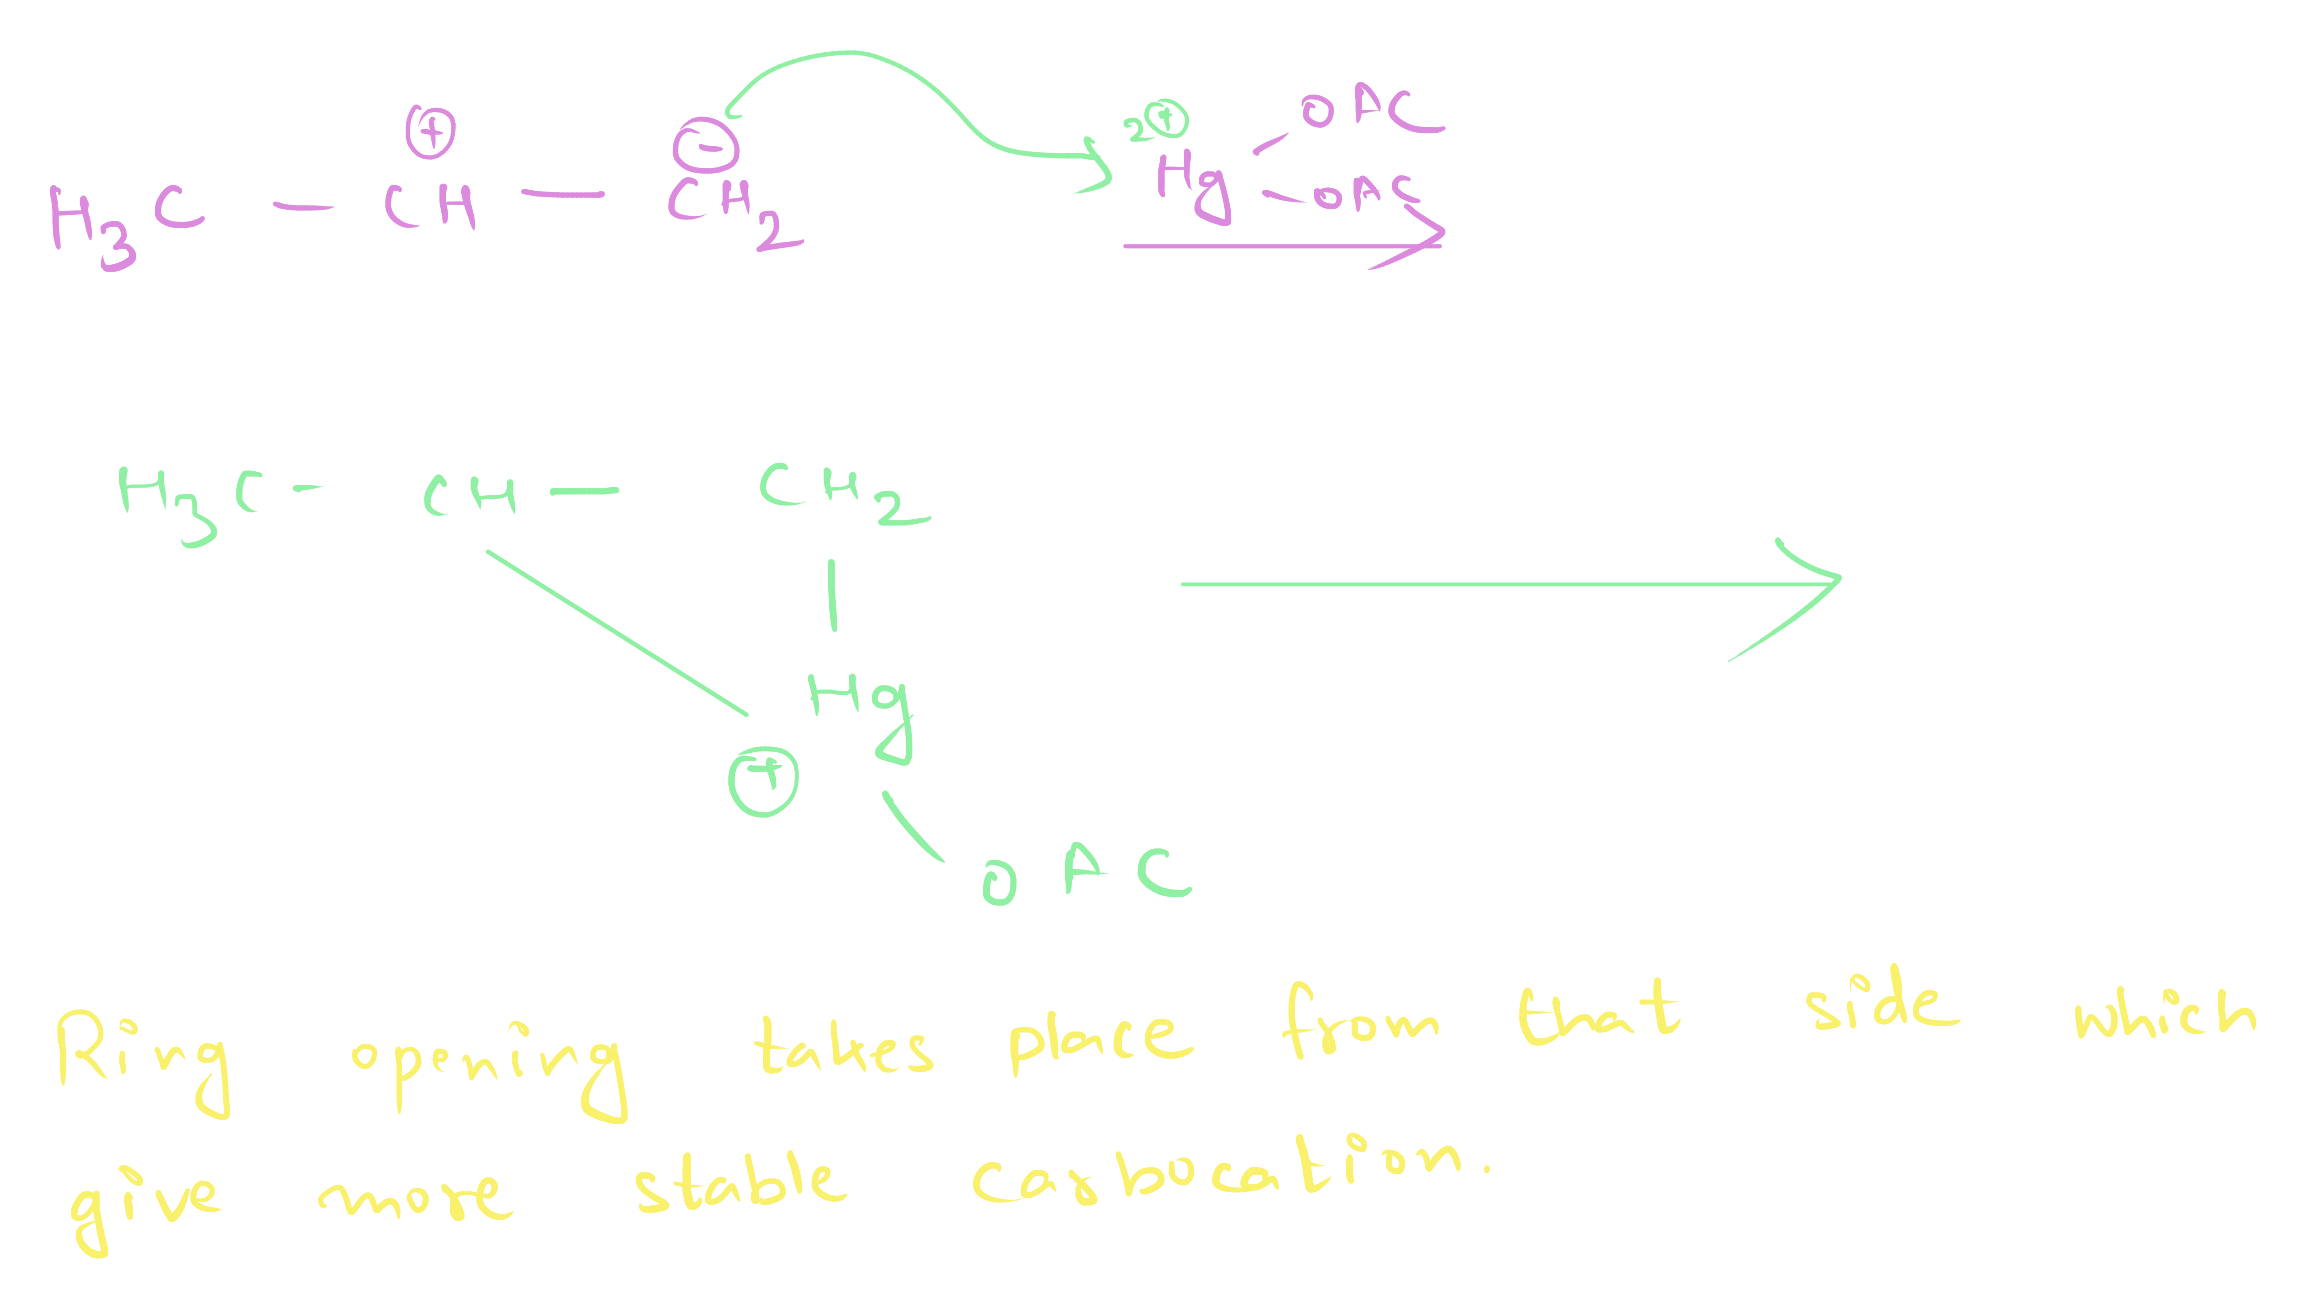 ⊕ ⊖ 2⊕ OAC
H3C — CH — CH2 Hg OAC
H3C - CH — CH2
Hg
⊕
OAC
Ring opening takes place from that side which
give more stable carbocation.